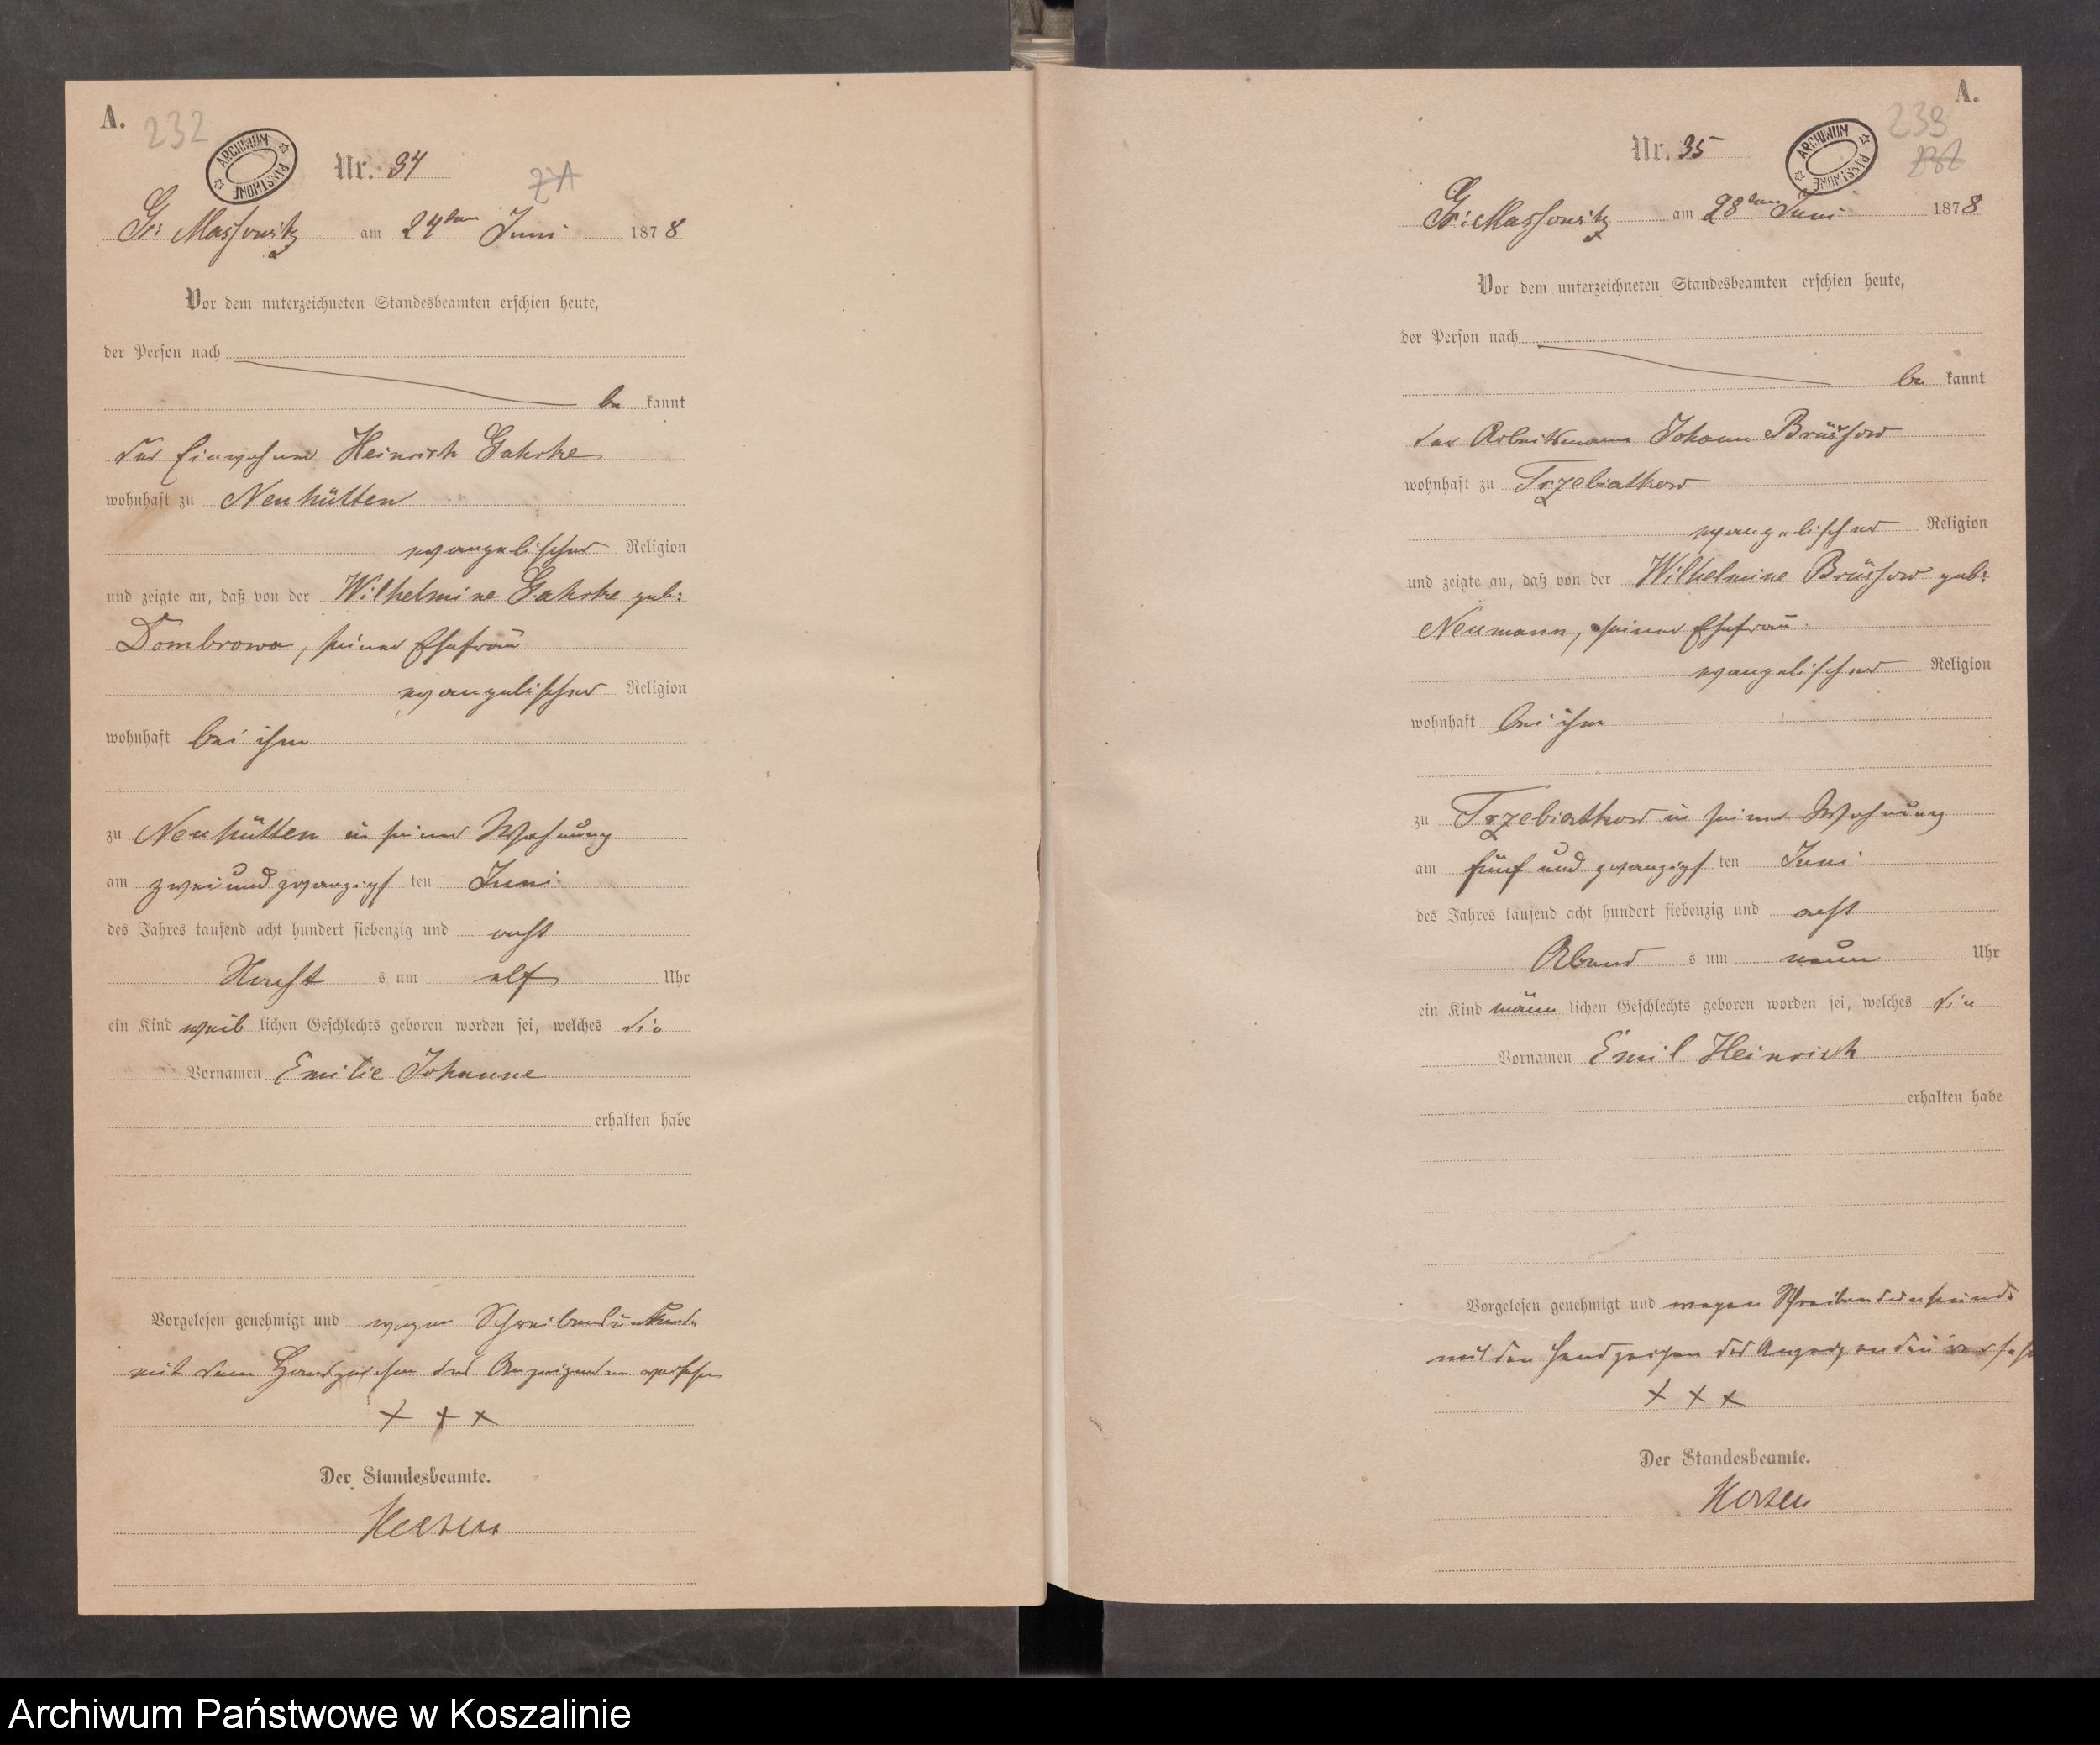 A.
232
ARCHIWUM PAŃSTWOWE
Nr. 34
Gr: Massowitz am 24ten Juni 1878
Vor dem unterzeichneten Standesbeamten erschien heute,
der Person nach
be kannt
der Einwohner Heinrich Gahrke
wohnhaft zu Neuhütten
evangelischer Religion
und zeigte an, daß von der Wilhelmine Gahrke geb:
Dombrowa, seiner Ehefrau
evangelischer Religion
wohnhaft bei ihm
zu Neuhütten in seiner Wohnung
am zwei und zwanzigs ten Juni
des Jahres tausend acht hundert siebenzig und acht
Nacht s um elf Uhr
ein Kind weib lichen Geschlechts geboren worden sei, welches die
Vornamen Emilie Johanne
erhalten habe
Vorgelesen genehmigt und wegen Schreibensunkunde
mit dem Handzeichen des Anzeigenden versehen
+ + +
Der Standesbeamte.
A.
233
232
ARCHIWUM PAŃSTWOWE
Nr. 35
Gr: Massowitz am 28ten Juni 1878
Vor dem unterzeichneten Standesbeamten erschien heute,
der Person nach
be kannt
der Arbeitsmann Johann Brüssow
wohnhaft zu Trzebiatkow
evangelischer Religion
und zeigte an, daß von der Wilhelmine Brüssow geb:
Neumann, seiner Ehefrau
evangelischer Religion
wohnhaft bei ihm
zu Trzebiatkow in seiner Wohnung
am fünf und zwanzigs ten Juni
des Jahres tausend acht hundert siebenzig und acht
Abend s um neun Uhr
ein Kind männ lichen Geschlechts geboren worden sei, welches die
Vornamen Emil Heinrich
erhalten habe
Vorgelesen genehmigt und wegen Schreibensunkunde
mit den Handzeichen des Anzeigenden versehen
+ + +
Der Standesbeamte.
Archiwum Państwowe w Koszalinie